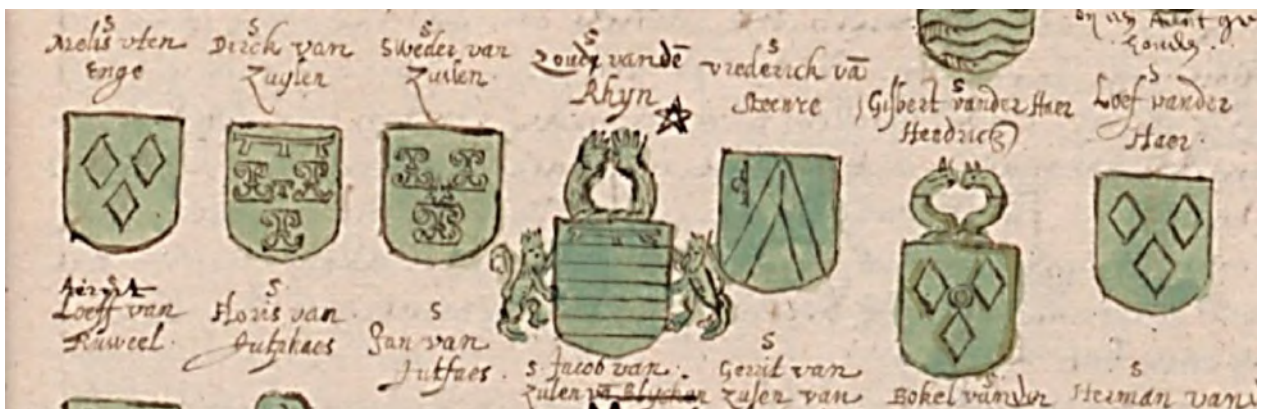 s
Melis vten
Enge
s
Dirck van
Zuylen
s
Sweder van
Zuilen
s
vandē
Rhyn
s
vrederich vā
s
Gisbert vander Haer
Hendrickz
s
Loef vander
Haer.
s
Loeff van
Ruweel.
s
Floris van
Jutphaes
s
Jan van
Jutfaes.
s Jacob van
Zulen
s
Gerrit van
Zulen van
s
Bokel vander
s
Herman van